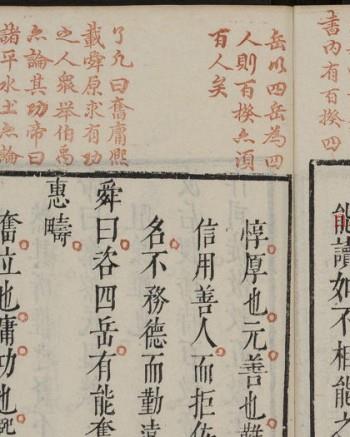 書內有百揆四
岳以四岳為四
人則百揆亦須
百人矣
了凡曰奮庸熙
載舜原求有功
之人眾舉伯禹
亦論其功帝曰
諸平水土亦論
能讀如不相能之
惇厚也元善也難
信用善人而拒佞
名不務德而勤遠
舜曰咨四岳有能奮
惠疇
奮立也庸功也熙